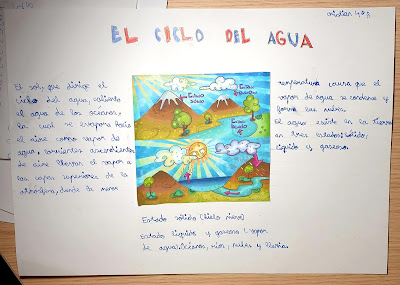 cristian 4ºA
EL CICLO DEL AGUA
El sol, que dirige el
ciclo del agua, calienta
el agua de los océanos,
la cual se evapora hacia
el aire como vapor de
agua. Corrientes ascendentes
de aire llevan el vapor a
las capas superiores de la
atmósfera, donde la menor
Estado
Sólido
Estado
Gaseoso
Estado
líquido
temperatura causa que el
vapor de agua se condense y
forme las nubes.
El agua existe en la Tierra
en tres estados: sólido,
líquido y gaseoso.
Estado sólido (hielo nieve)
Estado líquido y gaseoso (vapor
de agua. Océanos, ríos, nubes y lluvia.